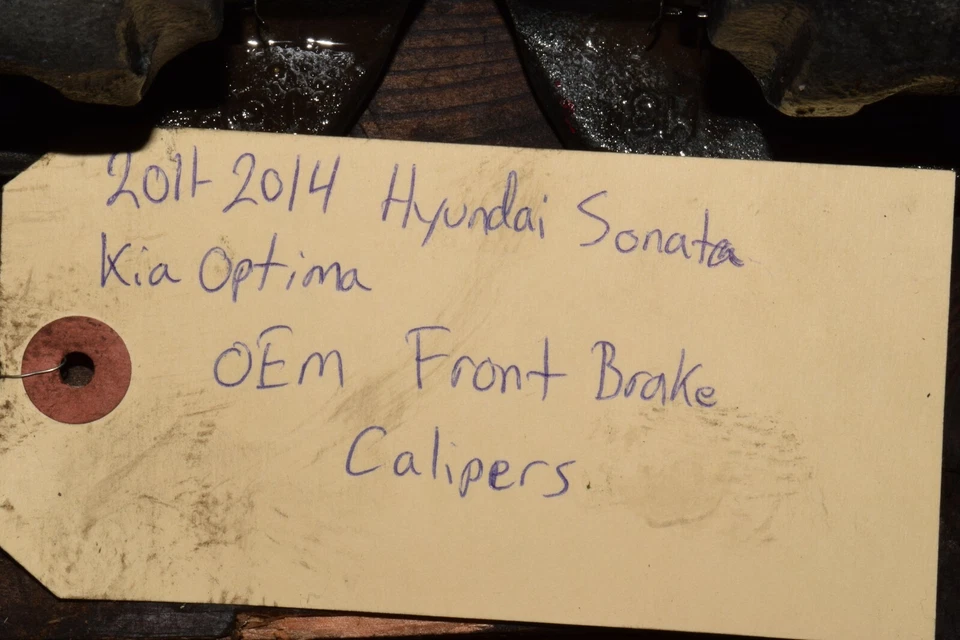 2011-2014 Hyundai Sonata
Kia Optima
OEM Front Brake
Calipers.